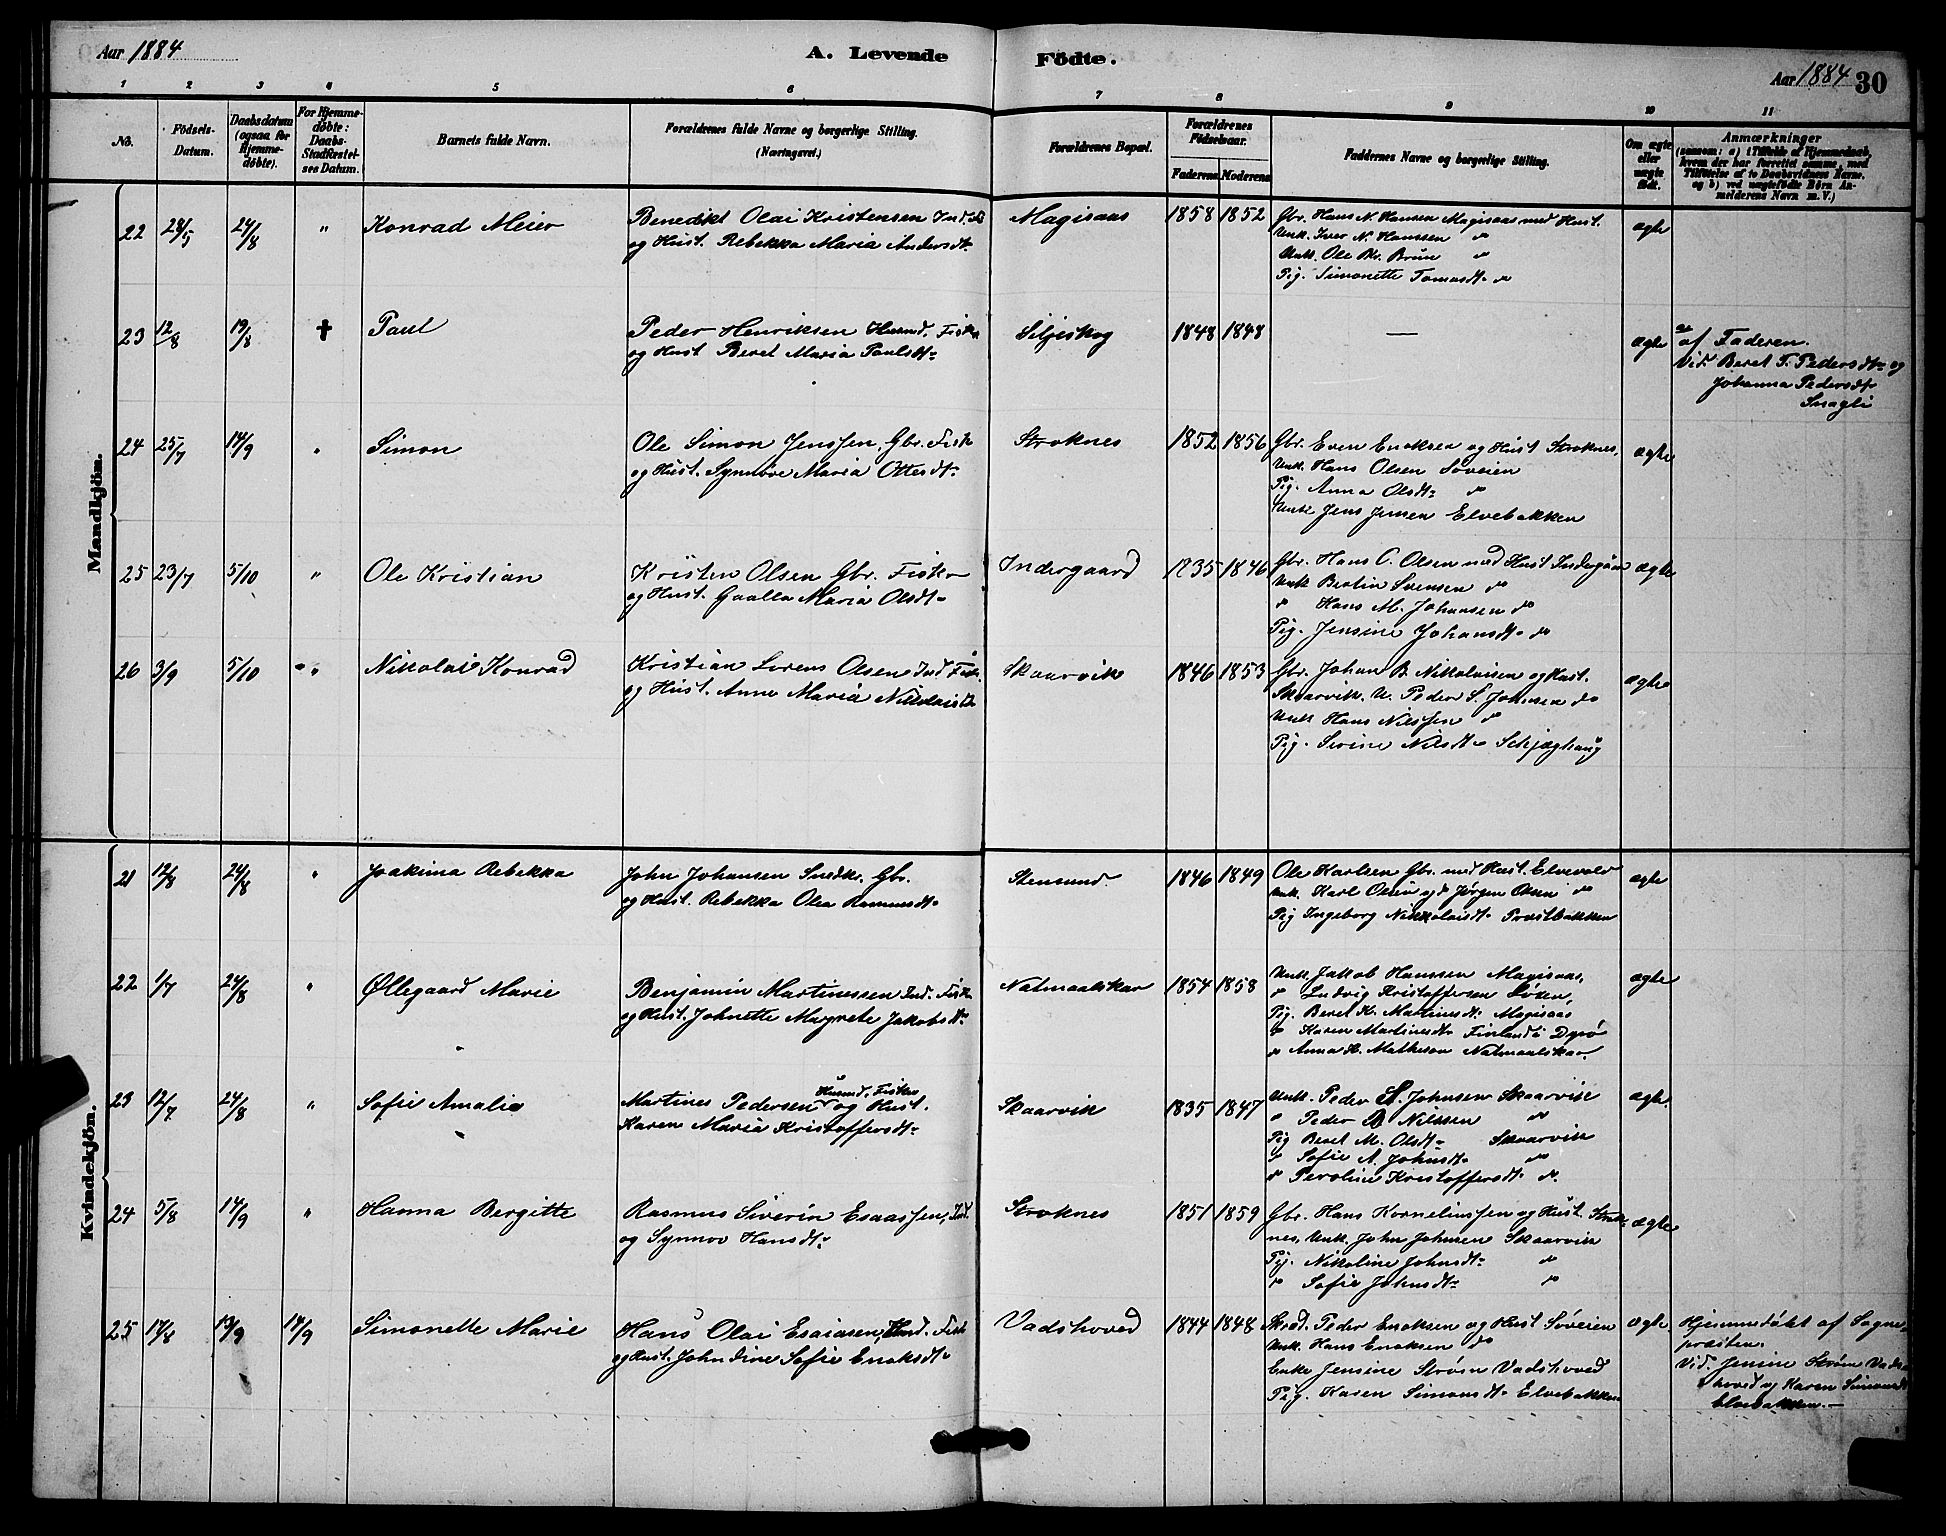 Aar 1884
A. Levende Födte.
Aar 1884 30
1 2 3 4 5 6 7 8 9 10 11
No.
Fødsels-Datum.
Daabsdatum (ogsaa for Hjemme-døbte).
For Hjemme-døbte: Daabs-Stadfæstel-ses Datum.
Barnets fulde Navn.
Forældrenes fulde Navne og borgerlige Stilling. (Næringsvei.)
Forældrenes Bopæl.
Forældrenes Fødselsaar.
Faderens Moderens
Faddernes Navne og borgerlige Stilling.
Om ægte eller uægte født.
Anmærkninger
(saasom: a) i Tilfælde af Hjemmedaab, hvem der har forrettet samme, med Tilføielse af to Daabsvidners Navne, og b) ved uægtefødte Börn An-melderens Navn m. V.)
Mandkjön.
22 28/5 24/8 " Konrad Meier
Benedikt Olai Kristensen Ind. Fis
og Hust. Rebekka Maria Andersdt.
Magisaas 1858 1852
Gbr. Hans N. Hansen Magisaas med Hust.
Unk. Iver N. Hanssen do
Unk. Ole Kr. Brun do
Pig. Simonette Tomasdt. do
ægte
23 12/8 19/8 + Paul
Peder Henriksen Husmd. Fisk
og Hust Beret Maria Paulsdt.
Siljeskog 1848 1848
—
ægte
af Faderen.
Vid. Beret T. Pedersdt. og
Johanna Pedersdt.
24 25/7 14/9 " Simon
Ole Simon Jenssen, Gbr. Fisk
og Hust. Synnöve Maria Ottesdt.
Stroknes 1852 1856
Gbr. Even Enoksen og Hust Stroknes,
Unk. Hans Olsen Søveien
Pig. Anna Olsdt. do
Unk. Jens Jensen Elvebakken
ægte
25 23/7 5/10 " Ole Kristian
Kristen Olsen Gbr. Fisker
og Hust. Gaalla Maria Olsdt.
Indergaard 1835 1846
Gbr. Hans C. Olsen med Hust Indergaar
Unk Bertin Svensen do
do Hans M. Johansen do
Pig. Jensine Johansdt. do
ægte
26 3/9 5/10 " Nikolai Konrad
Kristian Lorens Olsen Ind Fisk.
og Hust. Anne Maria Nikolaisdt
Skaarvik 1846 1853
Gbr. Johan B. Nikolaisen og Hust.
Skaarvik. U. Peder S. Johnsen do
Unk Hans Nilssen do
Pig. Sirine Nilsdt. Schjæghaug
ægte
Kvindekjön.
21 12/8 24/8 " Joakima Rebekka
John Johansen Snedk. Gbr.
og Hust. Rebekka Olea Rasmusdt.
Stensund. 1846 1849
Ole Karlsen Gbr. med Hust. Elvevold
Unk. Karl Olsen og do Jørgen Olsen do
Pig Ingeborg Nikkolaisdt. Præstbakken
ægte
22 1/7 24/8 " Øllegaard Marie
Benjamin Martinessen Ind. Fisk
og Hust. Johnette Margrete Jakobsdt.
Natmaalskar 1854 1858
Unk. Jakob Hanssen Magisaas,
do Ludvig Kristoffersen Søsen,
Pig. Beret K. Martinesdt. Magisaas
do Karen Martinesdt. Finland i Dyrö
do Anna H. Mathesen Natmaalskar.
ægte
23 12/7 24/8 " Sofie Amalie
Martines Pedersen Husmd. Fisker og Hust.
Karen Maria Kristoffersdt.
Skaarvik 1835 1847
Unk. Peder S. Johnsen Skaarvik
" Peder B Nilssen do
Pig Beret M. Olsdt. Skaarvik
do Sofie A. Johnsdt. do
do Peroline Kristoffersdt. do.
ægte.
24 5/8 14/9 " Hanna Bergitte
Rasmus Siverin Esaassen, Ind.
og Synnov Hansdt.
Stroknes 1851 1859
Gbr. Hans Korneliussen og Hust. Strok-
nes, Unk. John Johnsen Skaarvik
Pig. Nikoline Johnsdt. do
do Sofie Johnsdt. do
ægte
25 17/8 13/9 14/9 Simonette Marie
Hans Olai Esaiasen, Ind. Fisk
og Hust. Johndine Sofie Enoksdt.
Vadshoved 1844 1848
Skræd. Peder Enoksen og Hust Søveien
Unk. Hans Enoksen do
Enke Jensine Strøm Vadshoved
Pig. Karen Simonsdt. Elvebakken
ægte.
Hjemmedøbt af Sogne-
præsten.
Vid. Jensine Strøm Vads-
hoved og Karen Simonsdt
Elvebakken.—